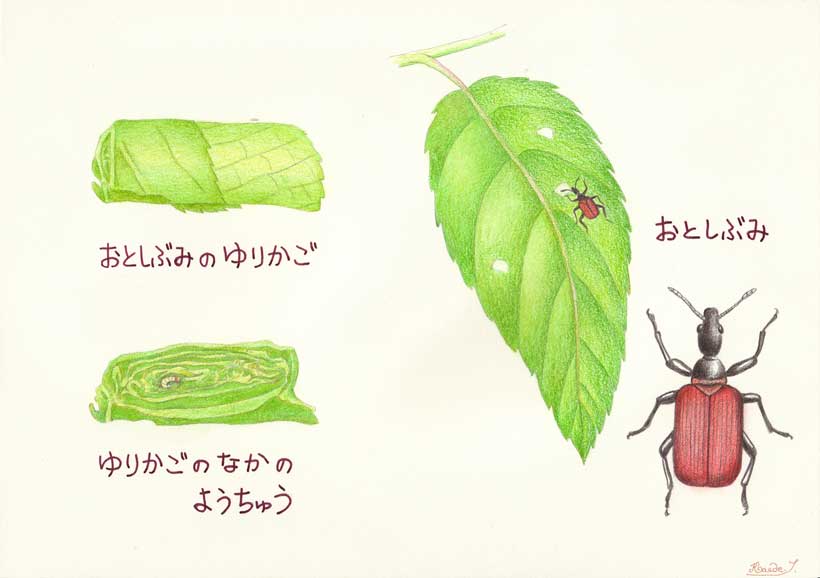 おとしぶみのゆりかご
おとしぶみ
ゆりかごのなかの
ようちゅう